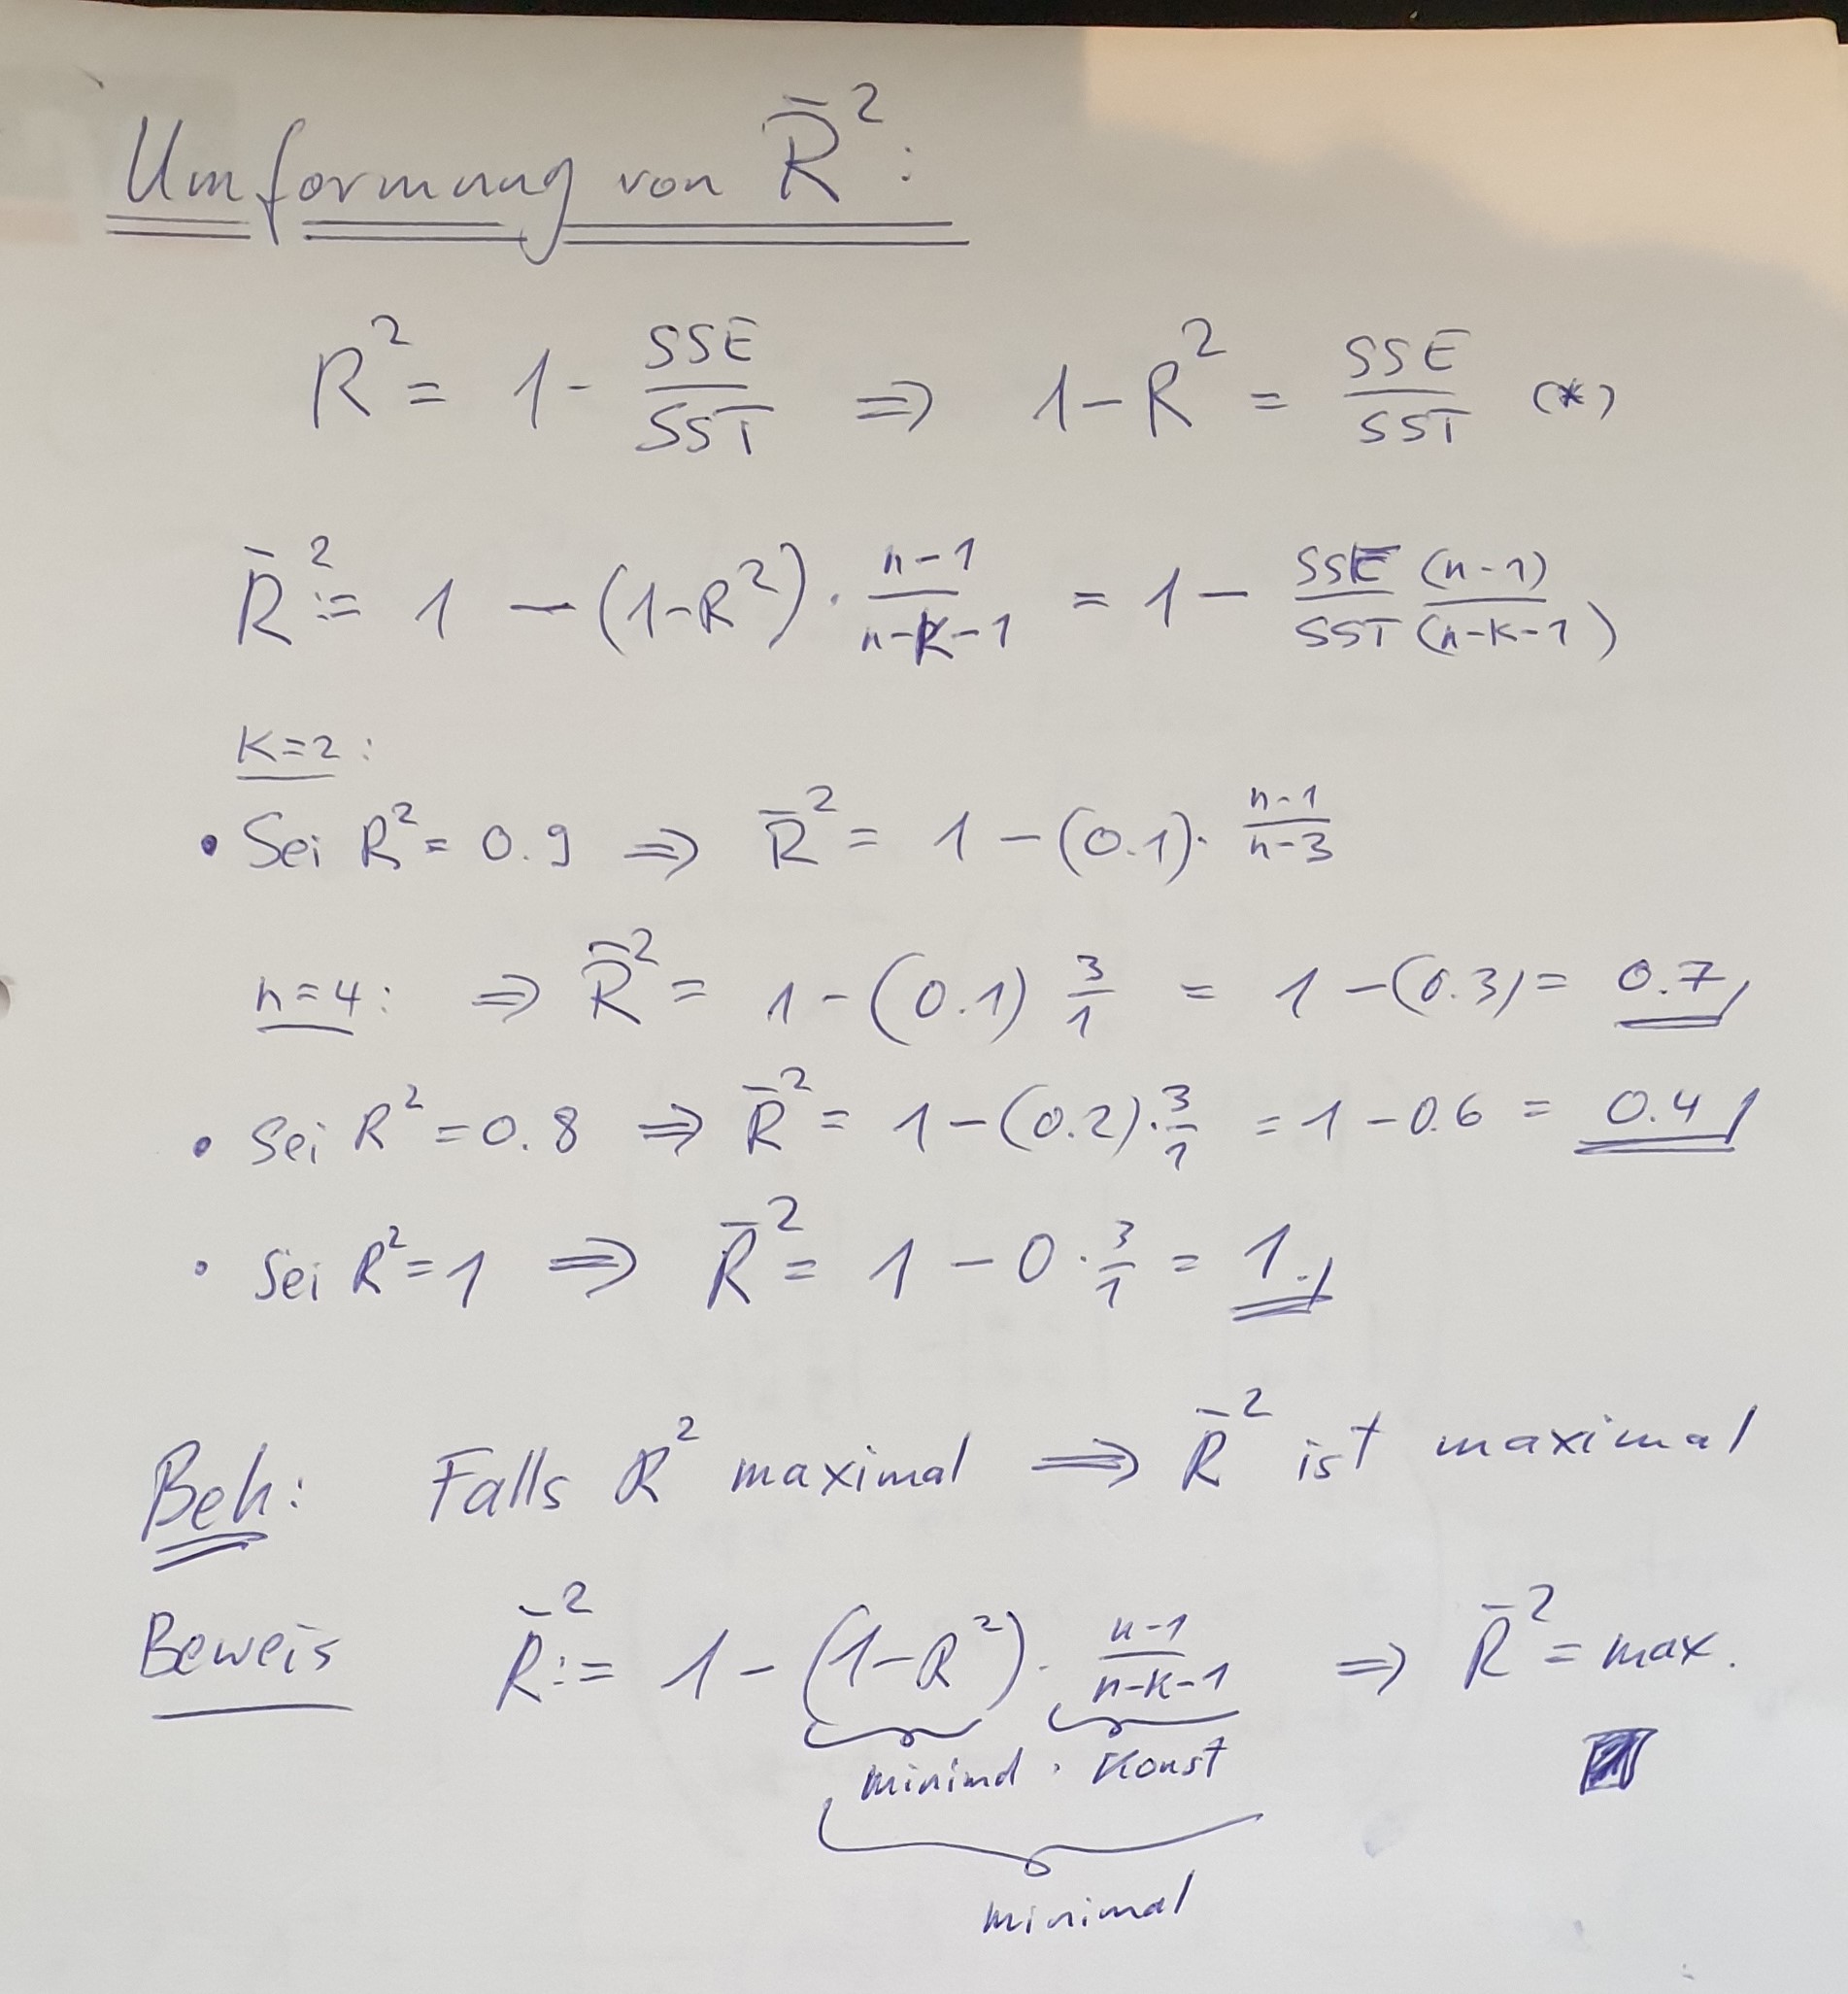 Umformung von R̄²:
R² = 1 - SSE/SST ⇒ 1-R² = SSE/SST (*)
R̄² := 1 - (1-R²) · (n-1)/(n-K-1) = 1 - SSE (n-1)/SST (n-K-1)
K=2:
• Sei R² = 0.9 ⇒ R̄² = 1 - (0.1) · (n-1)/(n-3)
n=4: ⇒ R̄² = 1 - (0.1) 3/1 = 1 - (0.3) = 0.7
• Sei R² = 0.8 ⇒ R̄² = 1 - (0.2) · 3/1 = 1 - 0.6 = 0.4
• Sei R² = 1 ⇒ R̄² = 1 - 0 · 3/1 = 1.
Beh: Falls R² maximal ⇒ R̄² ist maximal
Beweis R̄² := 1 - (1-R²) · (n-1)/(n-K-1) ⇒ R̄² = max.
minimal · Konst
minimal